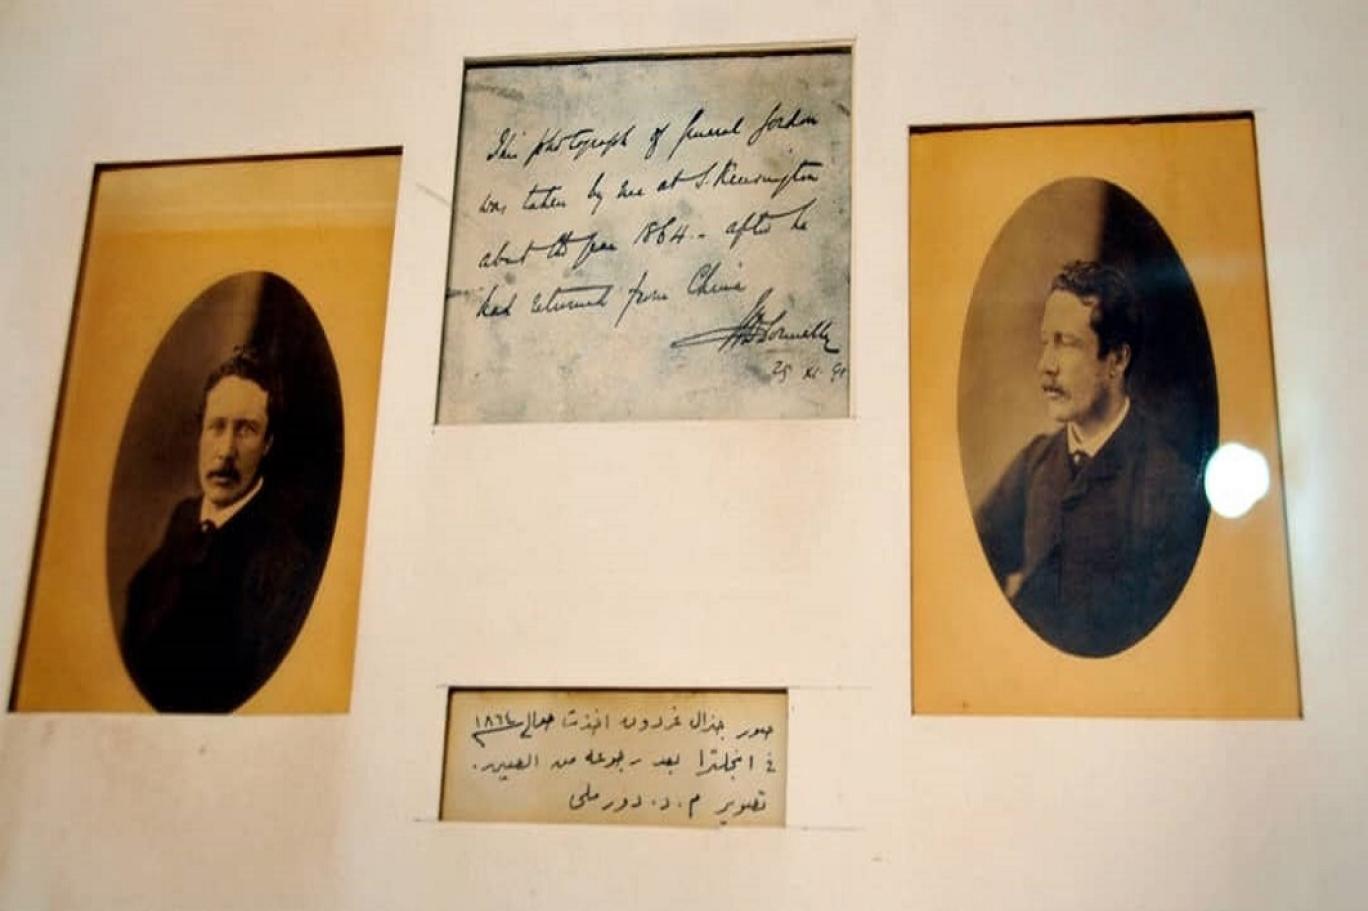 This photograph of General Gordon
was taken by me at S. Kensington
about the year 1864 - after he
had returned from China
Donnelly
25 XI 91
صور جنرال غردون اخذت حوالي ١٨٦٤
في انجلترا بعد رجوعه من الصين.
تصوير م. د. دورملي